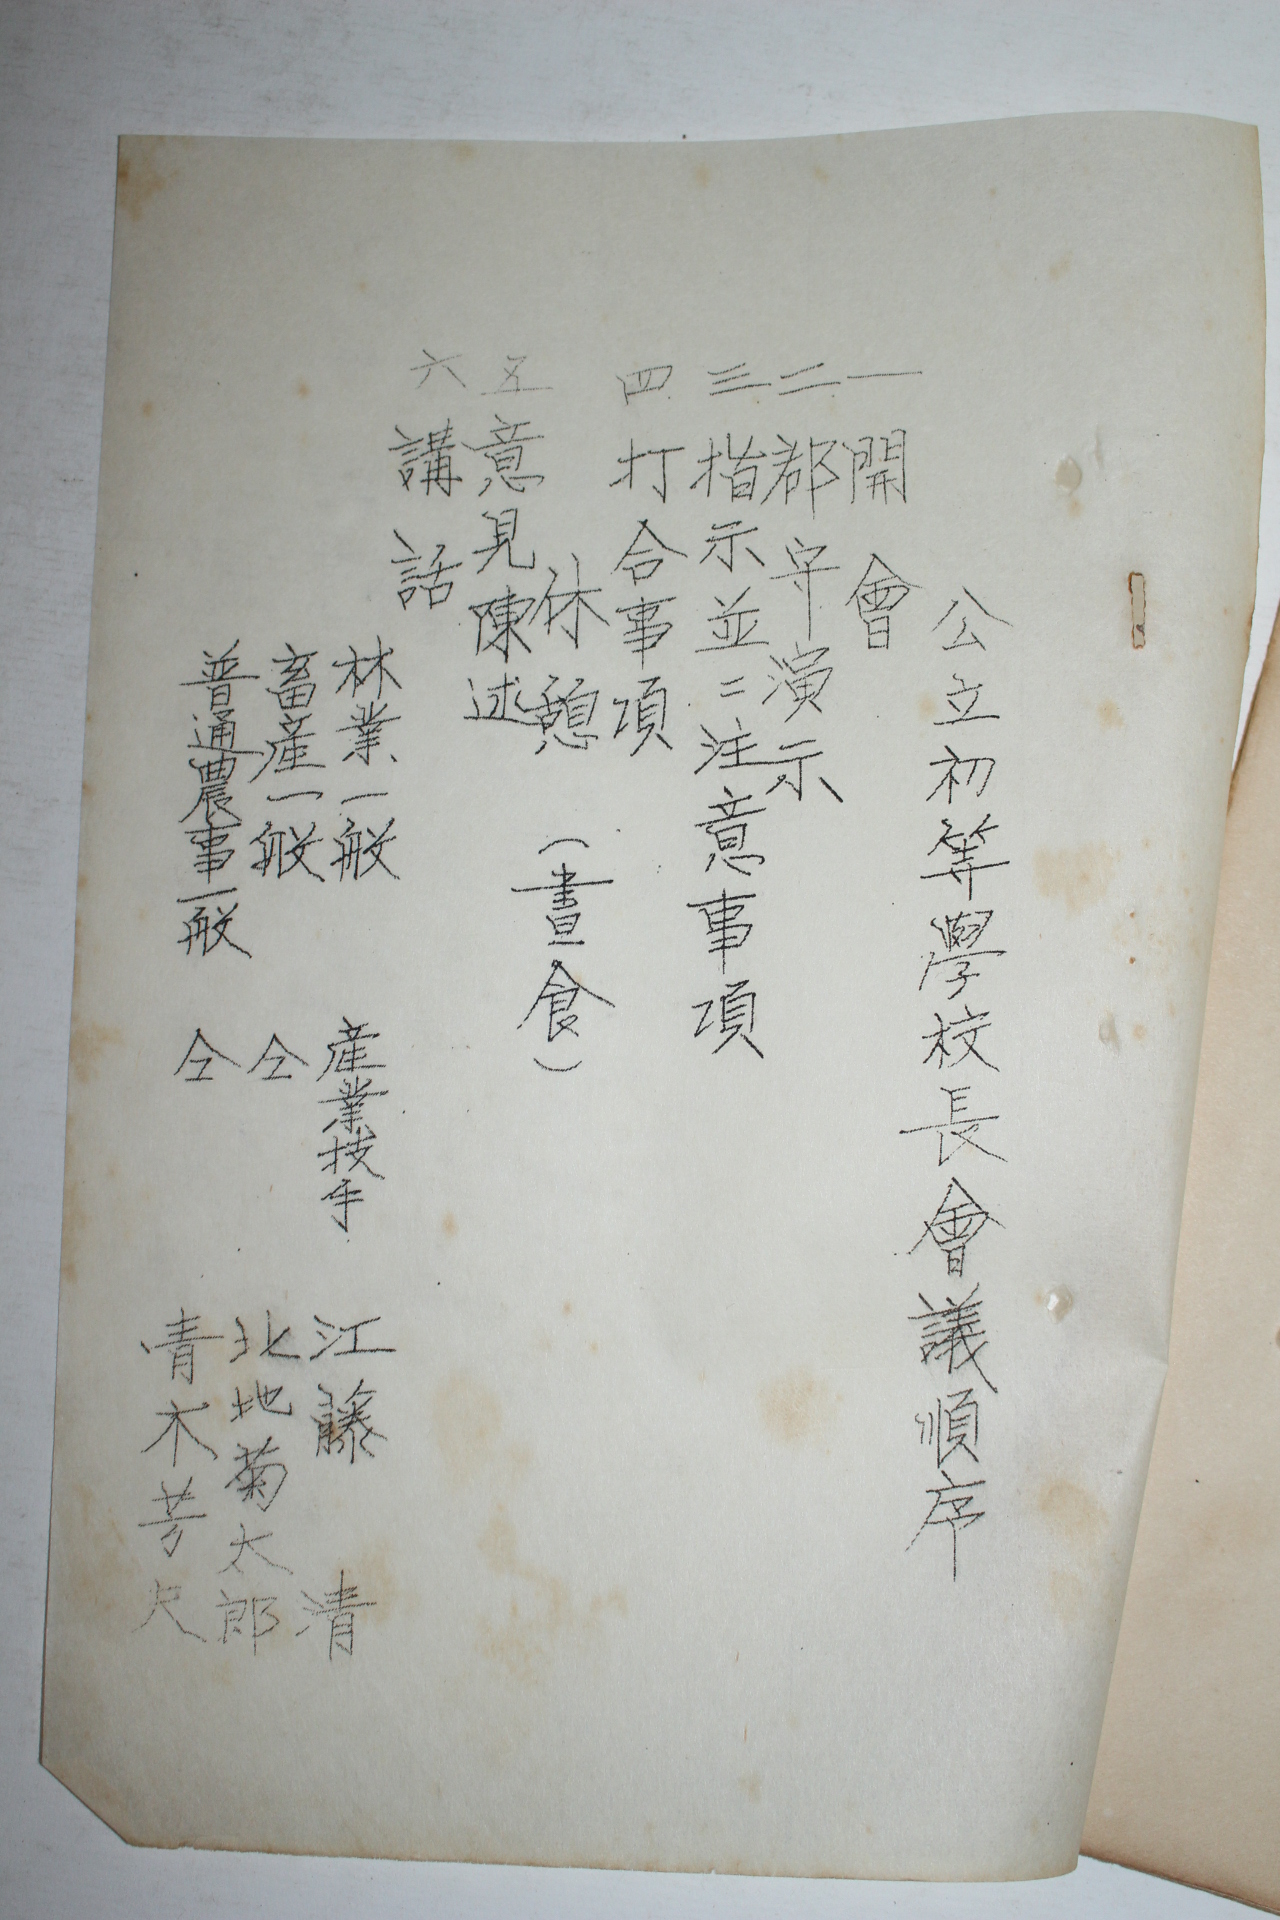 公立初等學校長會議順序
一 開會
二 郡守演示
三 指示並ニ注意事項
四 打合事項
休憩（晝食）
五 意見陳述
六 講話
林業一般 産業技手 江藤清
畜産一般 仝 北地菊太郎
普通農事一般 仝 青木芳